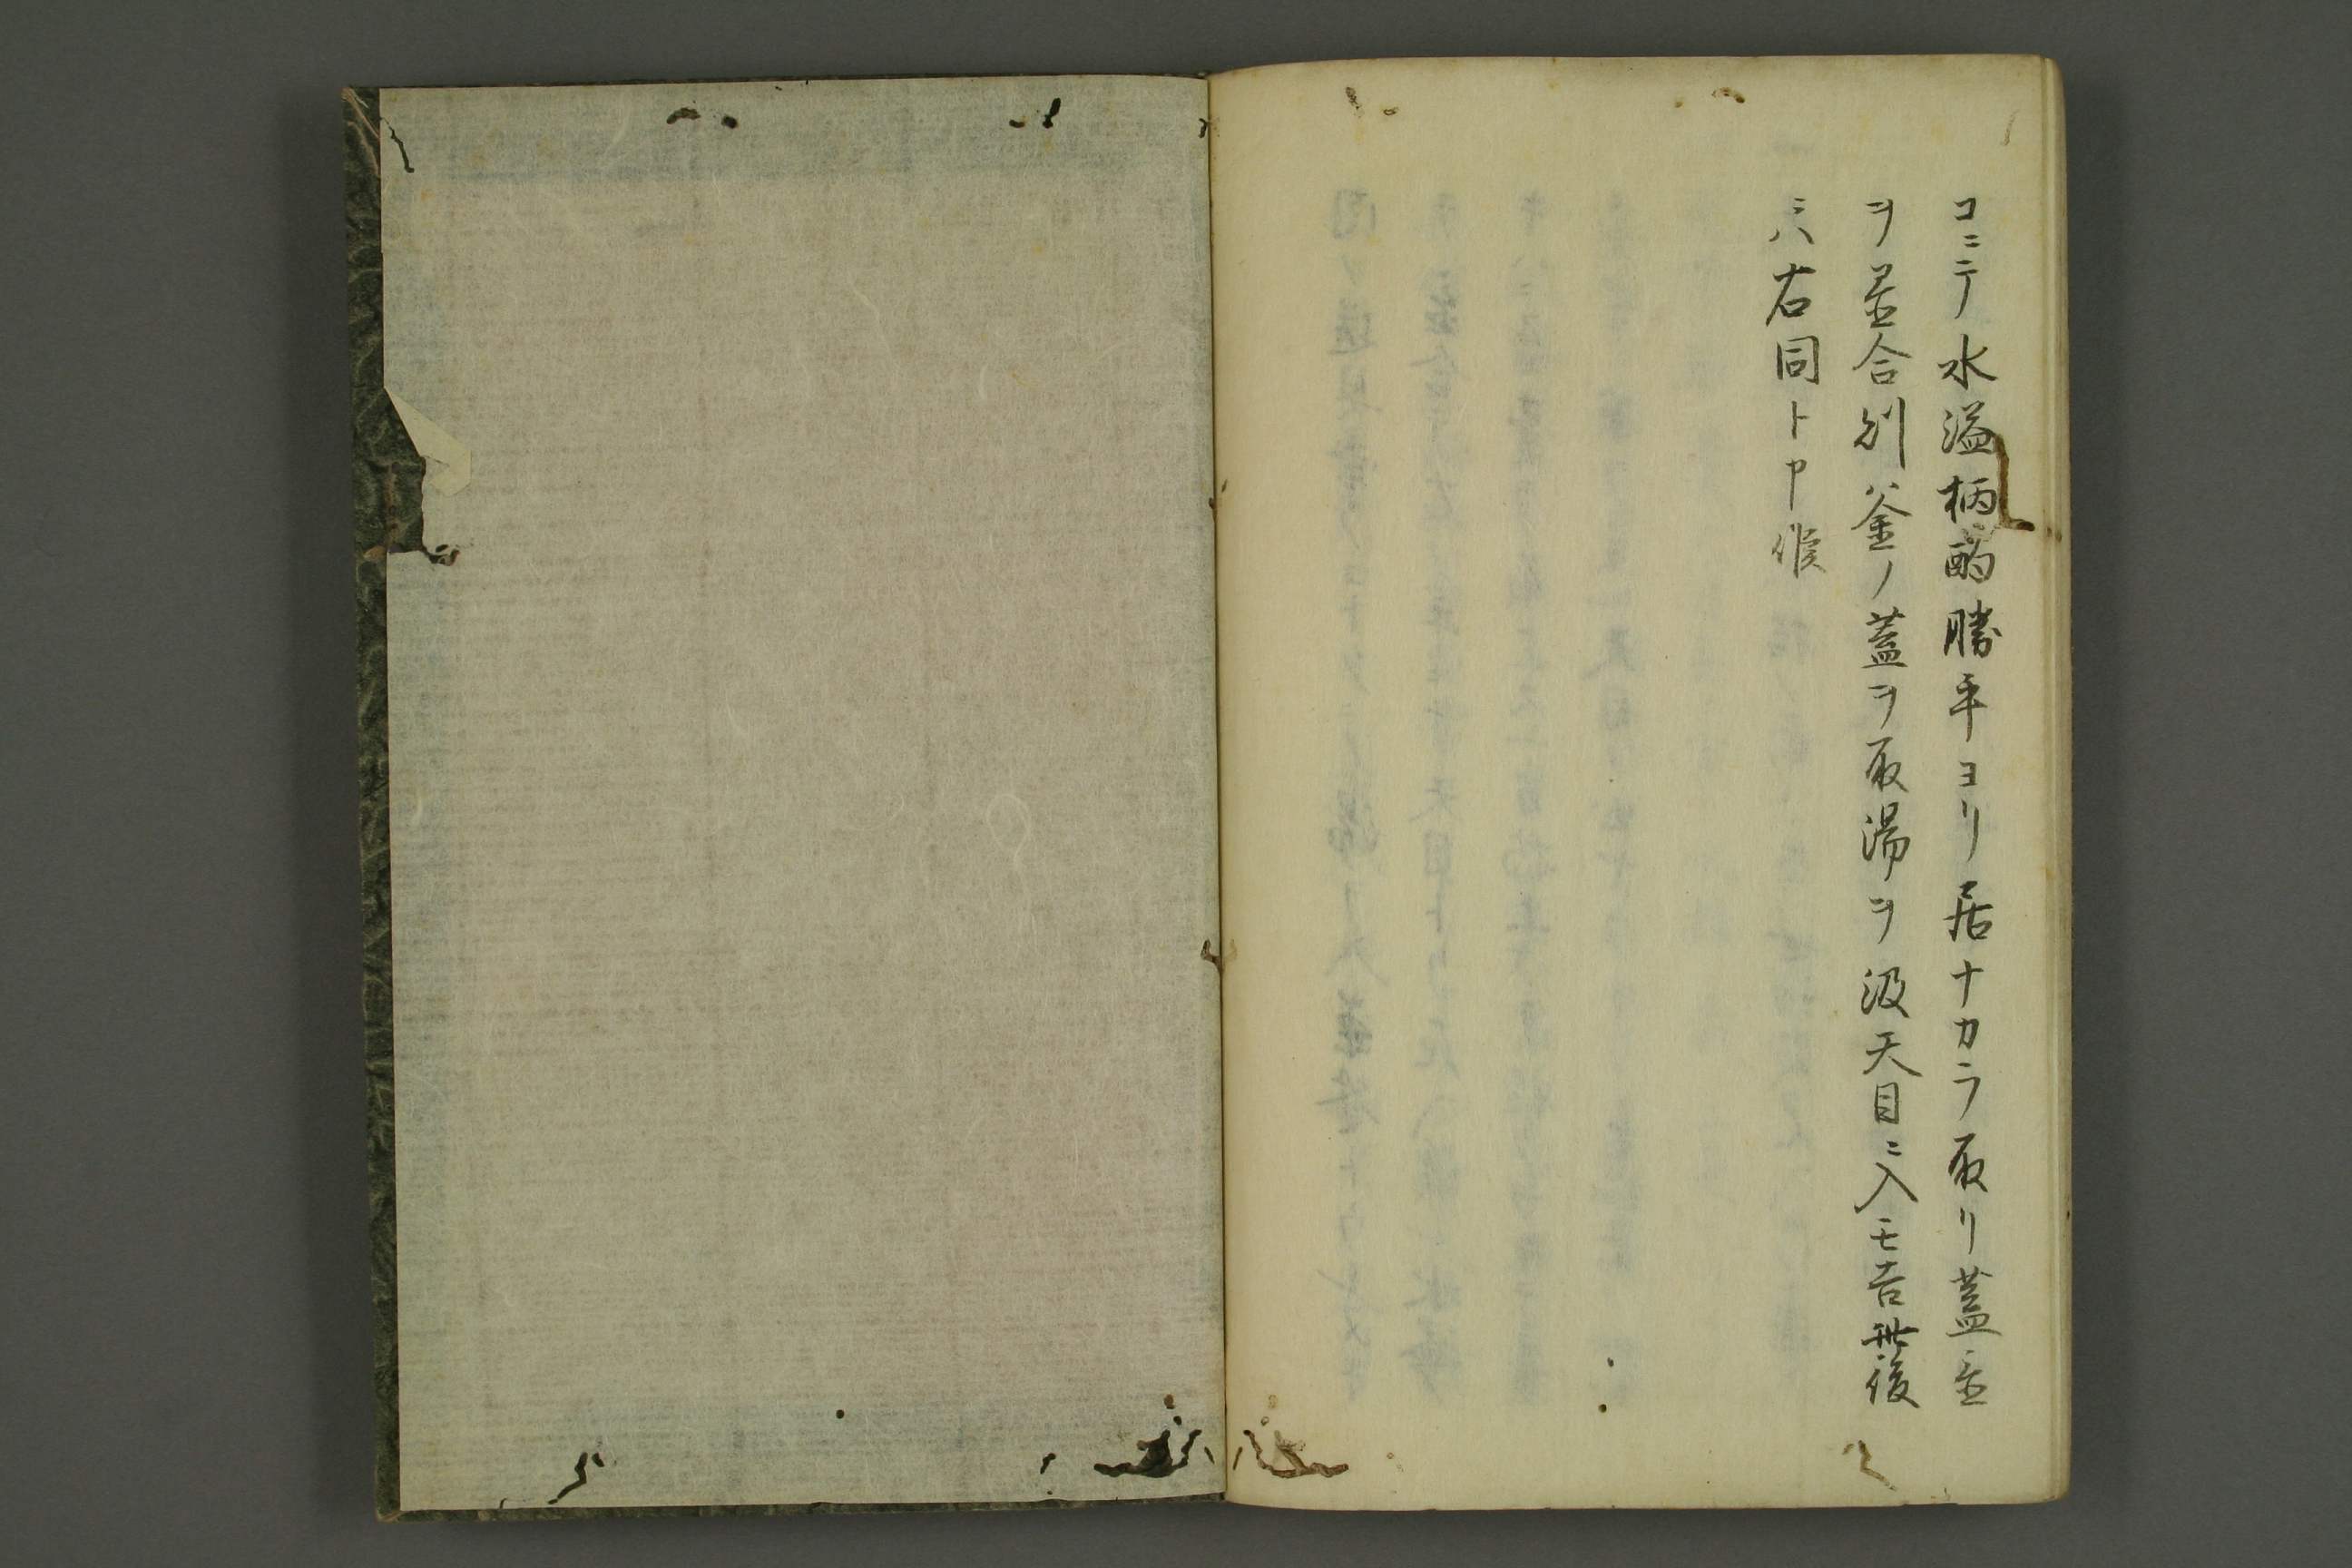 コニテ水溢柄酌勝手ヨリ居ナカラ取リ蓋置
ヲ置合別ハ釜ノ蓋ヲ取湯ヲ汲天目ニ入モ吉此後
ニハ右同ト申候